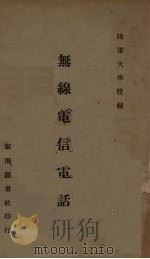 陸軍大學校編
無線電信電話
軍用圖書社印行